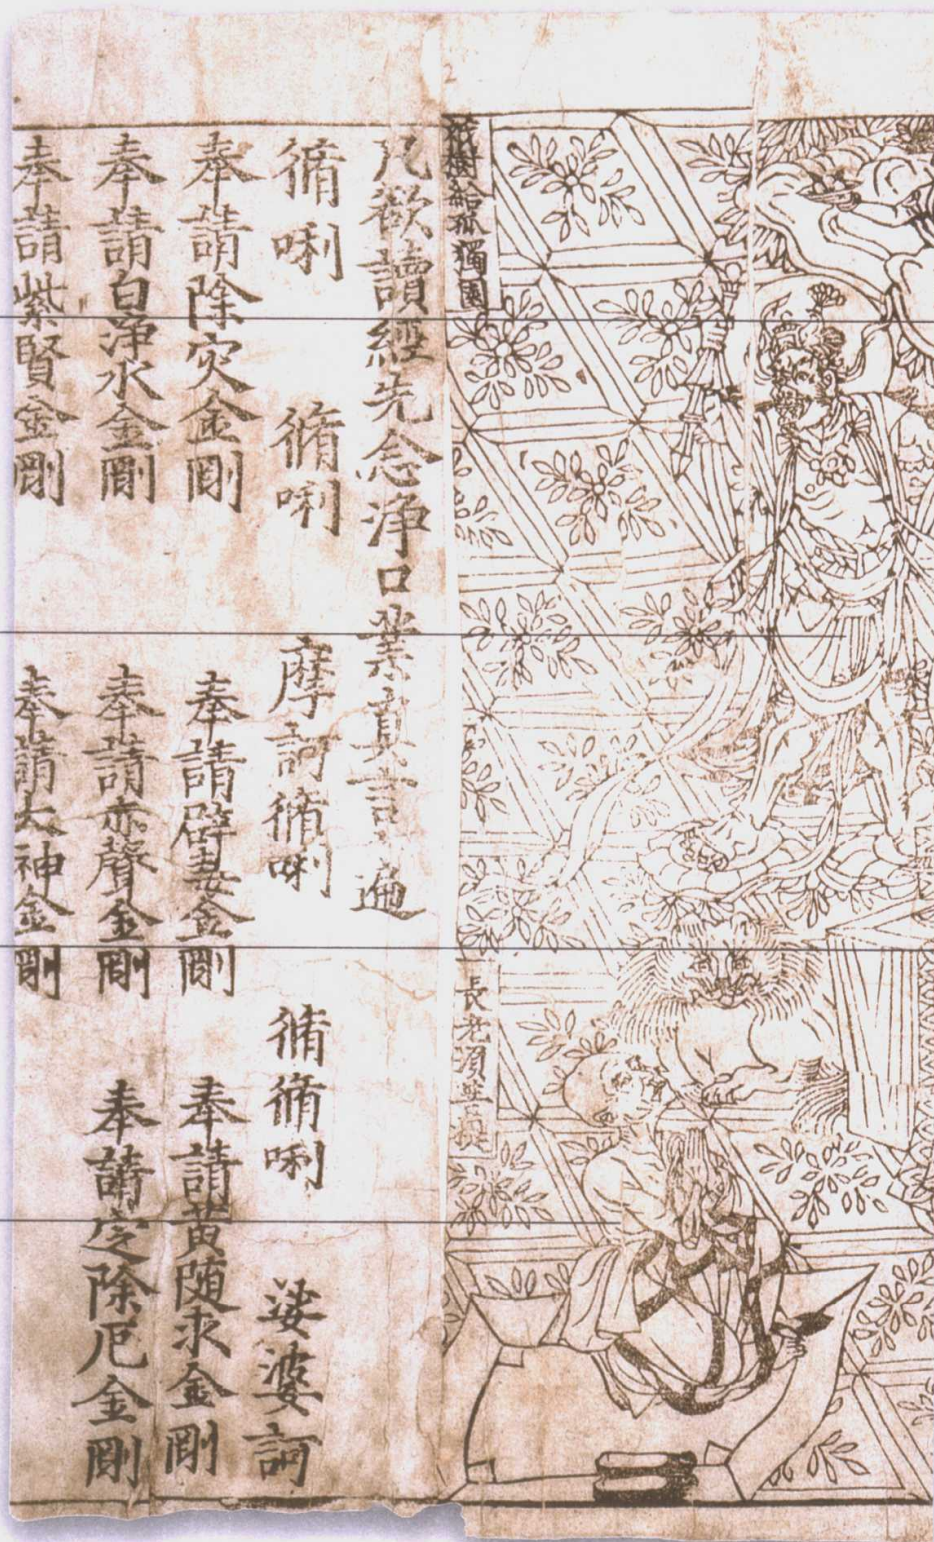 祇樹給孤獨園
長老須菩提
凡欲讀經先念淨口業真言遍
脩唎 脩唎 摩訶脩唎 脩脩唎 娑婆訶
奉請除灾金剛 奉請辟毒金剛 奉請黄随求金剛
奉請白淨水金剛 奉請赤聲金剛 奉請定除厄金剛
奉請紫賢金剛 奉請大神金剛